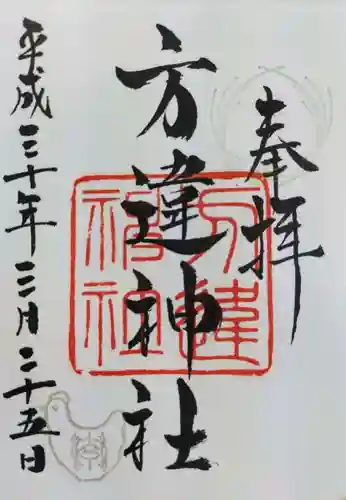 奉拝
方違神社
方違
神社
平成三十年三月二十五日